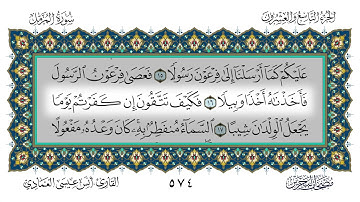 سورة المزمل
الجزء التاسع والعشرون
عَلَيْكُمْ كَمَآ أَرْسَلْنَآ إِلَىٰ فِرْعَوْنَ رَسُولًا ١٥ فَعَصَىٰ فِرْعَوْنُ ٱلرَّسُولَ
فَأَخَذْنَٰهُ أَخْذًا وَبِيلًا ١٦ فَكَيْفَ تَتَّقُونَ إِن كَفَرْتُمْ يَوْمًا
يَجْعَلُ ٱلْوِلْدَٰنَ شِيبًا ١٧ ٱلسَّمَآءُ مُنفَطِرٌۢ بِهِۦ ۚ كَانَ وَعْدُهُۥ مَفْعُولًا
القارئ: أنس عيسى العمادي
٥٧٤
مصحف البحرين